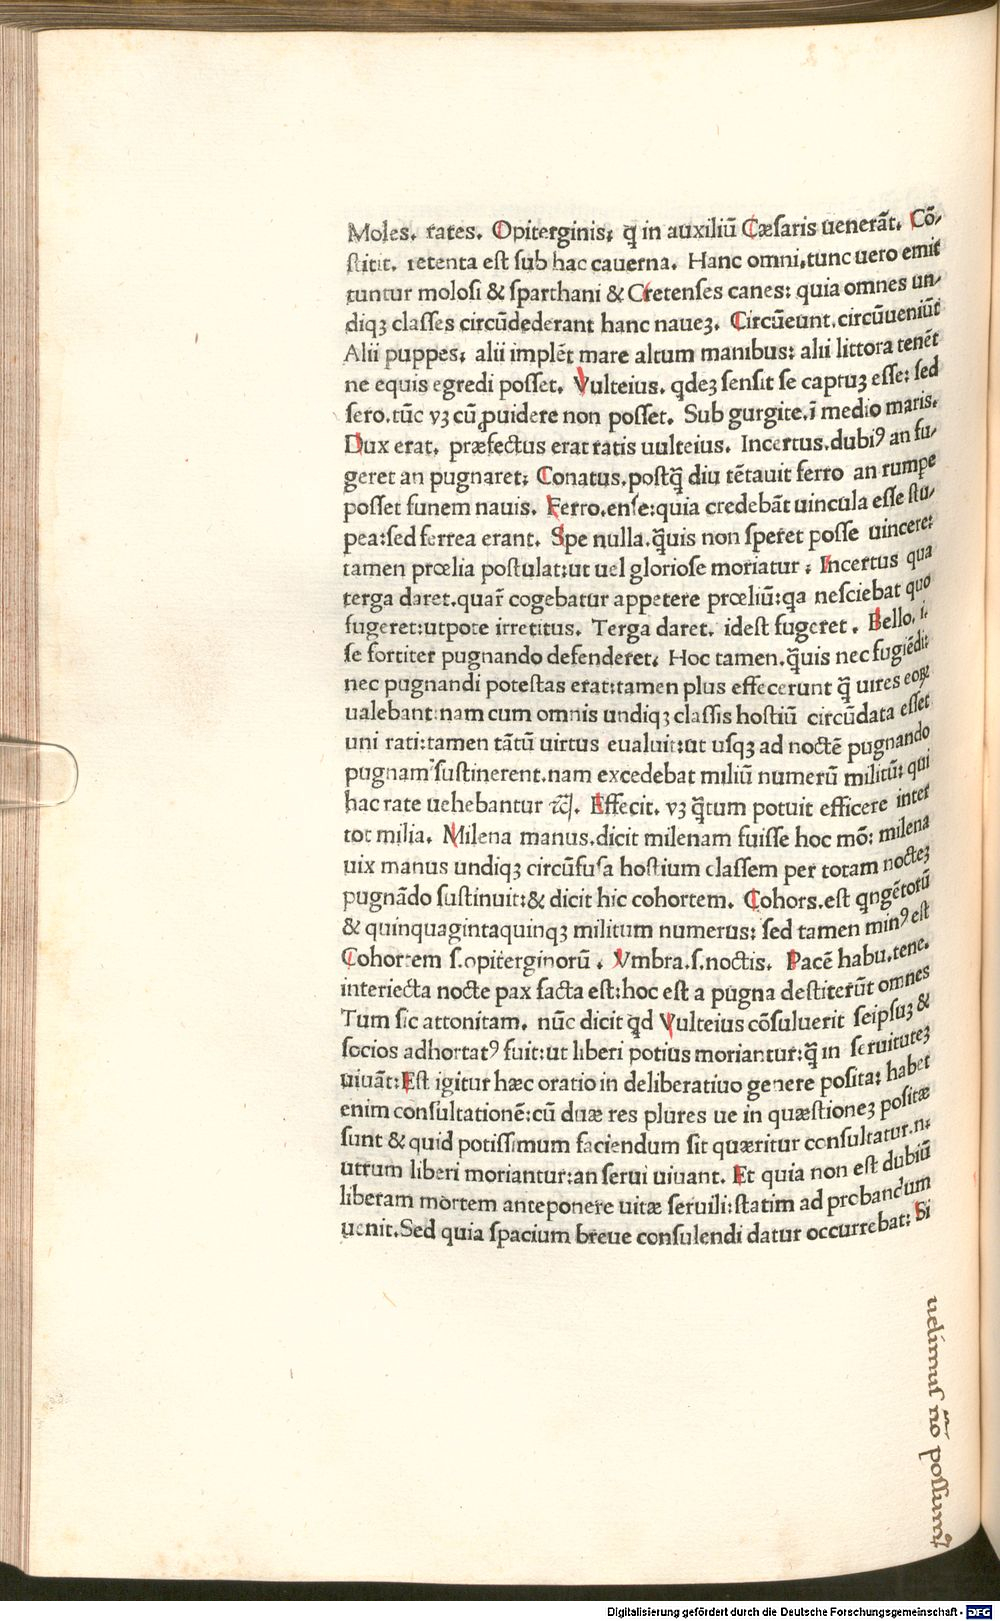 Moles. rates. Opiterginis: q̃ in auxiliũ Cæſaris uenerãt. Cõ-
ſtitit. retenta eſt ſub hac cauerna. Hanc omni.tunc uero emit
tuntur moloſi & ſparthani & Cretenſes canes: quia omnes un-
diqꝫ claſſes circũdederant hanc naueꝫ. Circũeunt.circũueniũt
Alii puppes: alii implẽt mare altum manibus: alii littora tenẽt
ne equis egredi poſſet. Vulteius. qdeꝫ ſenſit ſe captuꝫ eſſe: ſed
ſero.tũc vꝫ cũ ꝓuidere non poſſet. Sub gurgite.ĩ medio maris.
Dux erat. præfectus erat ratis uulteius. Incertus.dubiꝰ an fu-
geret an pugnaret: Conatus.poſtq̃ diu tẽtauit ferro an rumpe
poſſet funem nauis. Ferro.enſe:quia credebãt uincula eſſe ſtu-
pea:ſed ferrea erant. Spe nulla.q̃uis non ſperet poſſe uincere:
tamen prœlia poſtulat:ut uel glorioſe moriatur : Incertus qua
terga daret.quar̃ cogebatur appetere prœliũ:qa neſciebat quo
fugeret:utpote irretitus. Terga daret. ideſt fugeret. Bello. i.
ſe fortiter pugnando defenderet. Hoc tamen.q̃uis nec fugiẽdi:
nec pugnandi poteſtas erat:tamen plus effecerunt q̃ uires eoꝝ
ualebant:nam cum omnis undiqꝫ claſſis hoſtiũ circũdata eſſet
uni rati:tamen tãtũ uirtus eualuit:ut uſqꝫ ad noctẽ pugnando
pugnam ſuſtinerent.nam excedebat miliũ numerũ militũ: qui
hac rate uehebantur ⁊cꝭ. Effecit. vꝫ q̃tum potuit efficere inter
tot milia. Milena manus.dicit milenam fuiſſe hoc mõ: milena
uix manus undiqꝫ circũfuſa hoſtium claſſem per totam nocteꝫ
pugnãdo ſuſtinuit:& dicit hic cohortem. Cohors.eſt qngẽtorũ
& quinquagintaquinqꝫ militum numerus: ſed tamen minꝰ eſt
Cohortem ſ.opiterginorũ . Vmbra.ſ.noctis. Pacẽ habu.tene.
interiecta nocte pax facta eſt:hoc eſt a pugna deſtiterũt omnes
Tum ſic attonitam. nũc dicit q̃d Vulteius cõſuluerit ſeipſuꝫ &
ſocios adhortatꝰ fuit:ut liberi potius moriantur:q̃ in ſeruituteꝫ
uiuãt:Eſt igitur hæc oratio in deliberatiuo genere poſita: habet
enim conſultationẽ:cũ duæ res plures ue in quæſtioneꝫ poſitæ
ſunt & quid potiſſimum faciendum ſit quæritur conſultatur.n:
utrum liberi moriantur:an ſerui uiuant. Et quia non eſt dubiũ
liberam mortem anteponere uitæ ſeruili:ſtatim ad probandum
uenit.Sed quia ſpacium breue conſulendi datur occurrebat: Si
uelimuſ nõ poſſumꝰ
Digitalisierung gefördert durch die Deutsche Forschungsgemeinschaft - DFG